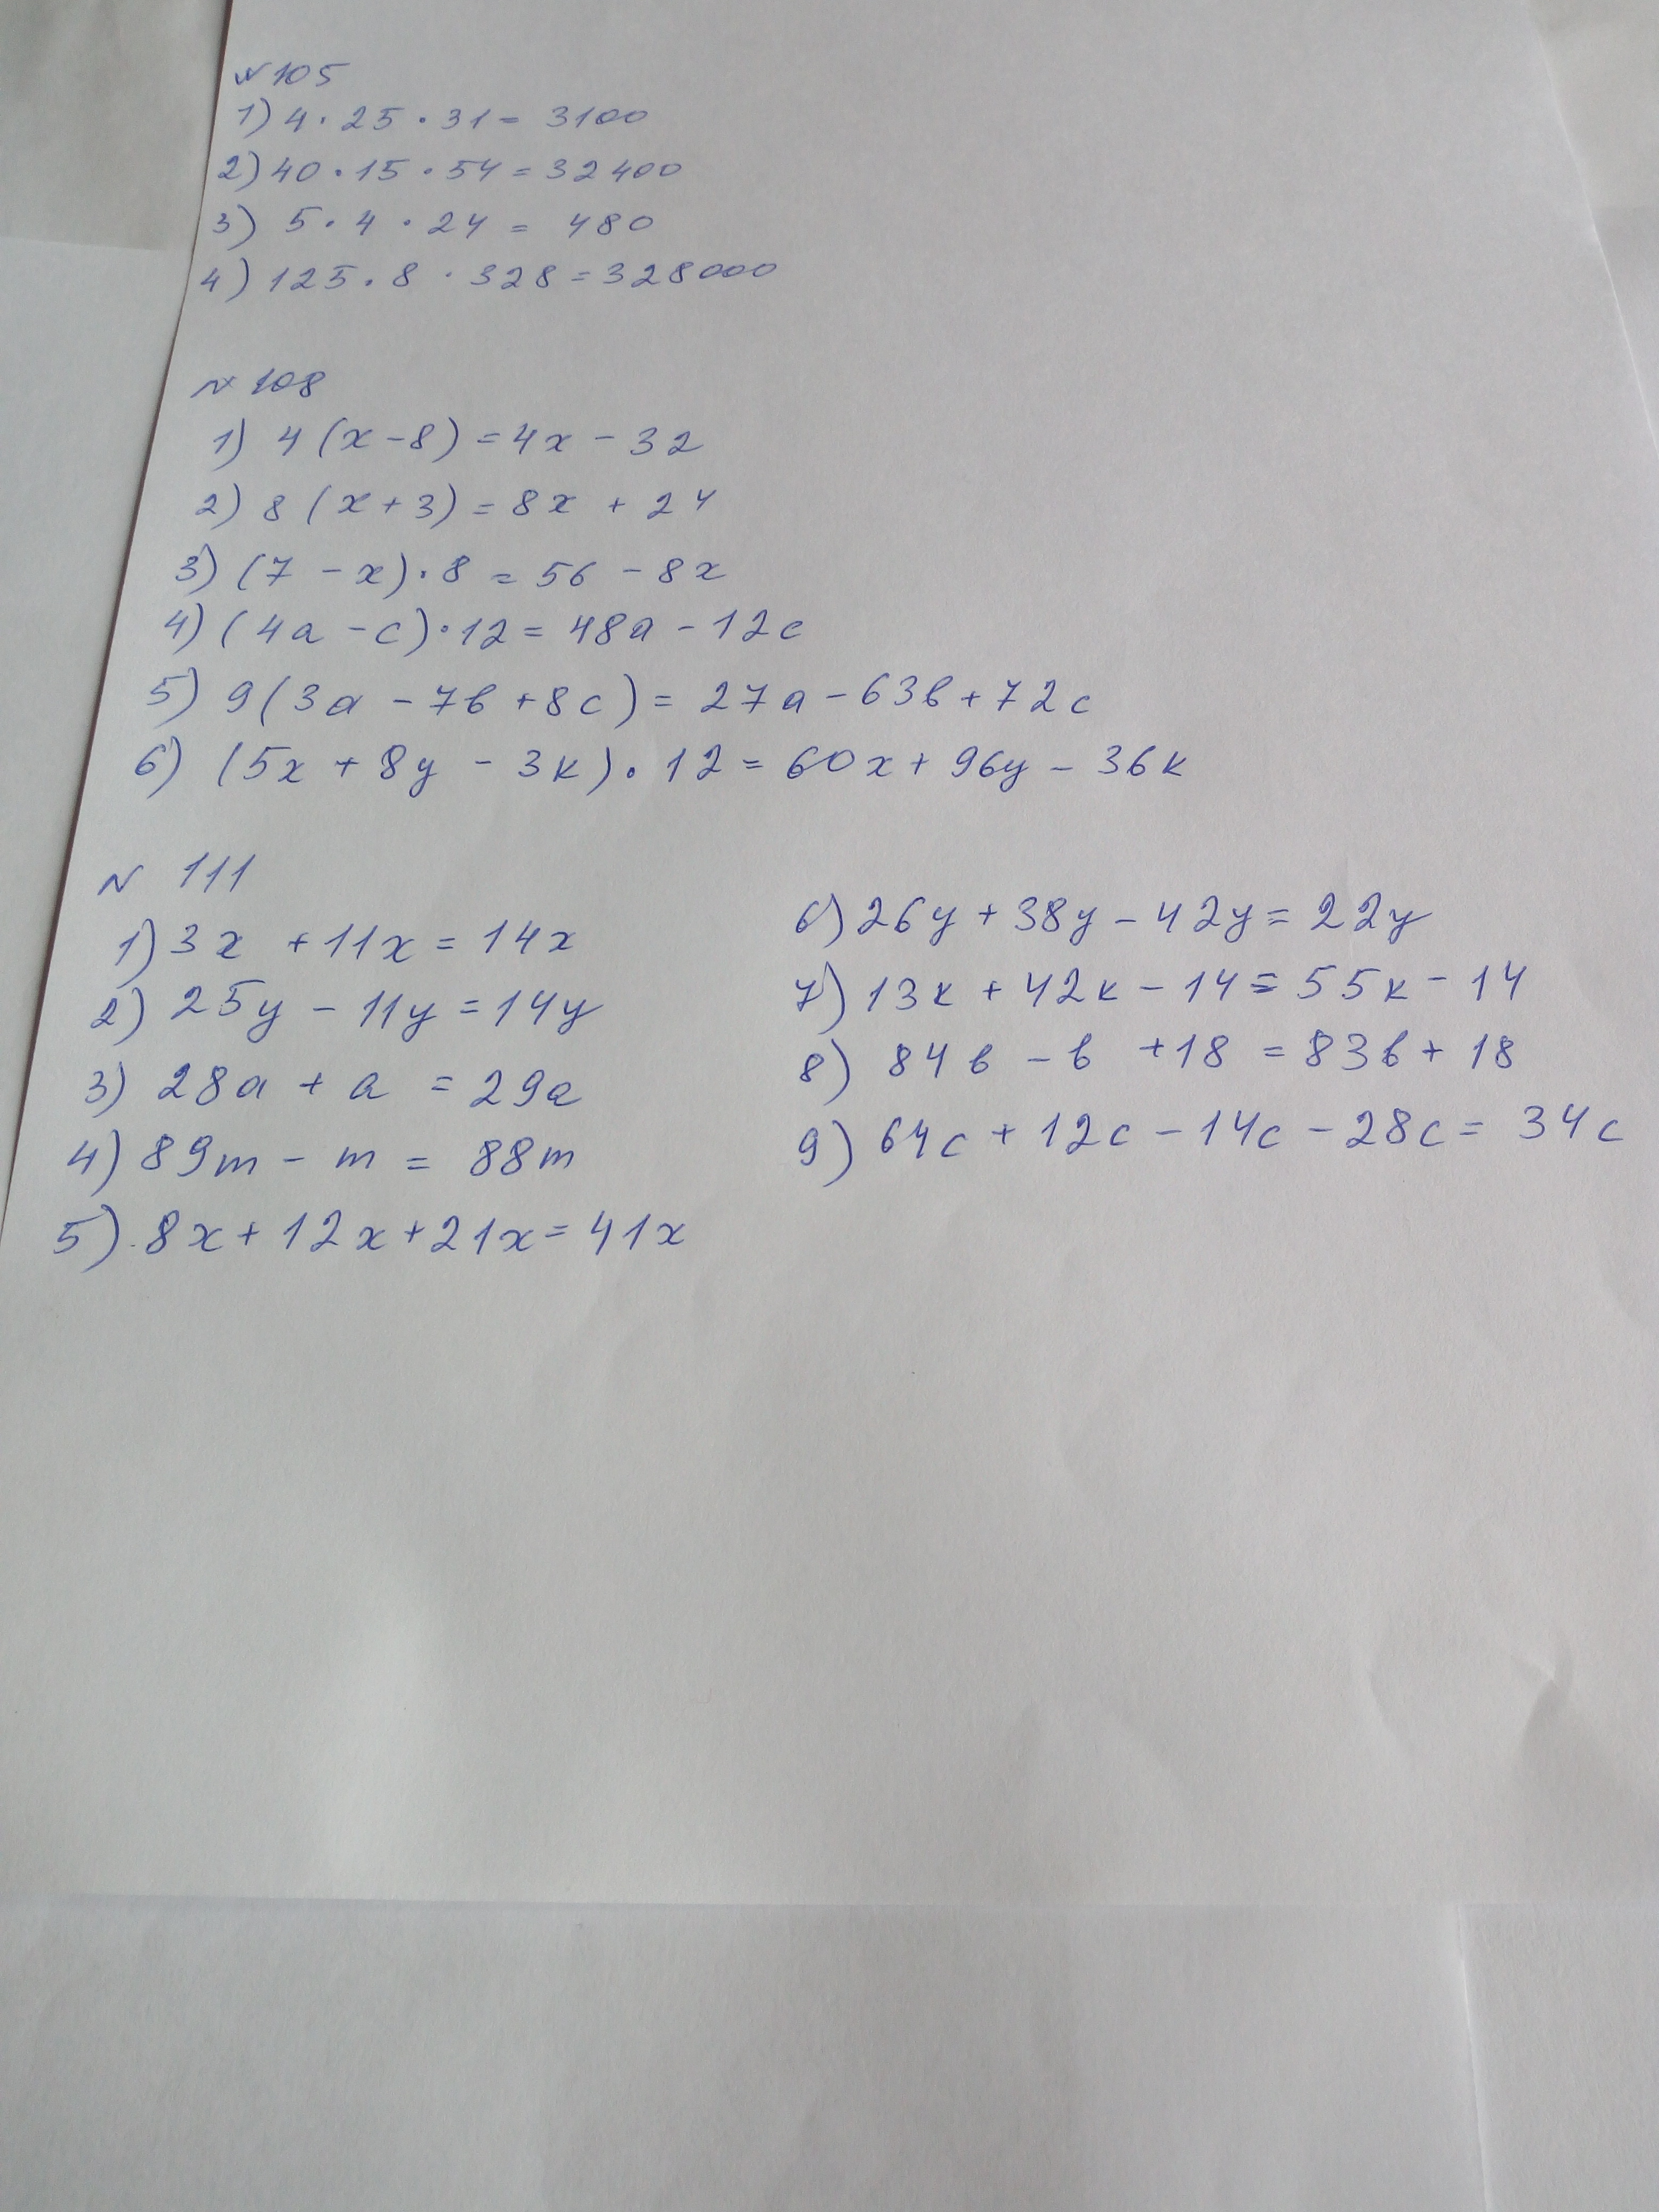 № 105
1) 4 · 25 · 31 = 3100
2) 40 · 15 · 54 = 32400
3) 5 · 4 · 24 = 480
4) 125 · 8 · 328 = 328000
№ 108
1) 4 (x - 8) = 4x - 32
2) 8 (x + 3) = 8x + 24
3) (7 - x) · 8 = 56 - 8x
4) (4a - c) · 12 = 48a - 12c
5) 9 (3a - 7b + 8c) = 27a - 63b + 72c
6) (5x + 8y - 3k) · 12 = 60x + 96y - 36k
№ 111
1) 3x + 11x = 14x
2) 25y - 11y = 14y
3) 28a + a = 29a
4) 89m - m = 88m
5) 8x + 12x + 21x = 41x
6) 26y + 38y - 42y = 22y
7) 13k + 42k - 14 = 55k - 14
8) 84b - b + 18 = 83b + 18
9) 64c + 12c - 14c - 28c = 34c